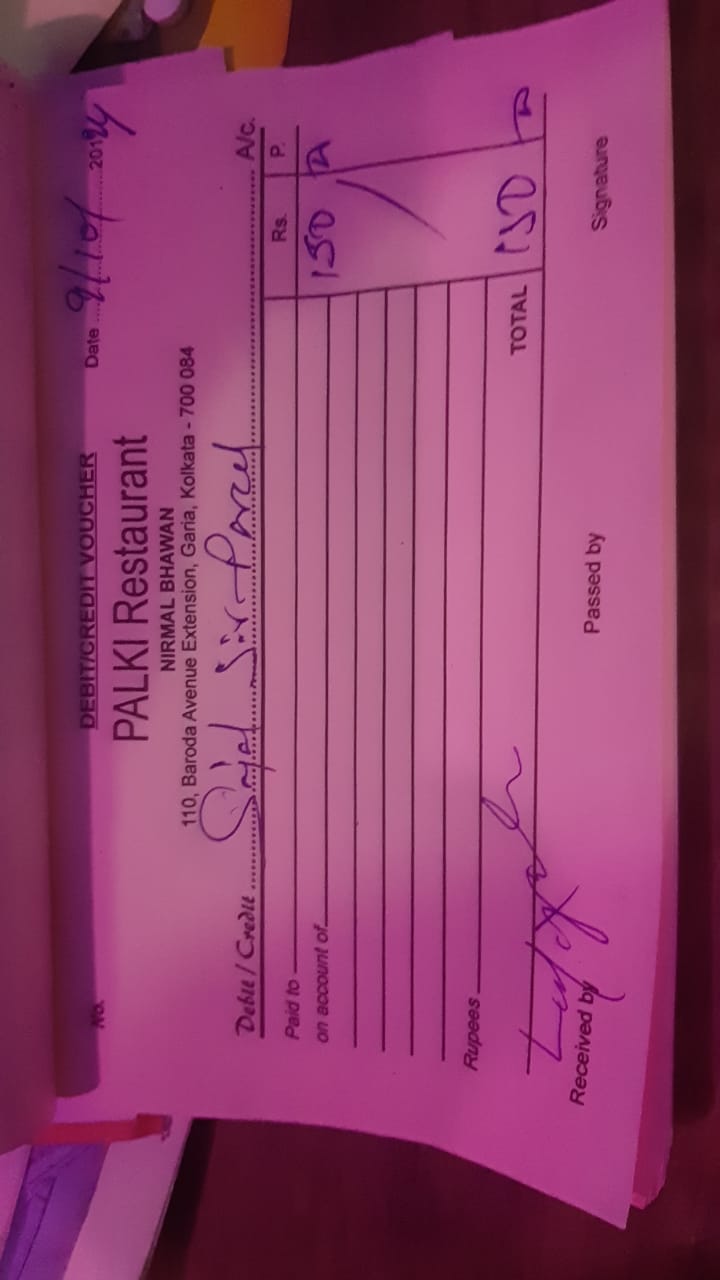 DEBIT/CREDIT VOUCHER
No. Date 9/10/ 2024
PALKI Restaurant
NIRMAL BHAWAN
110, Baroda Avenue Extension, Garia, Kolkata - 700 084
Debit / Credit Sajal Sir Parcel A/c.
Paid to Rs. P.
on account of 150
Rupees
TOTAL 150
Received by Passed by Signature